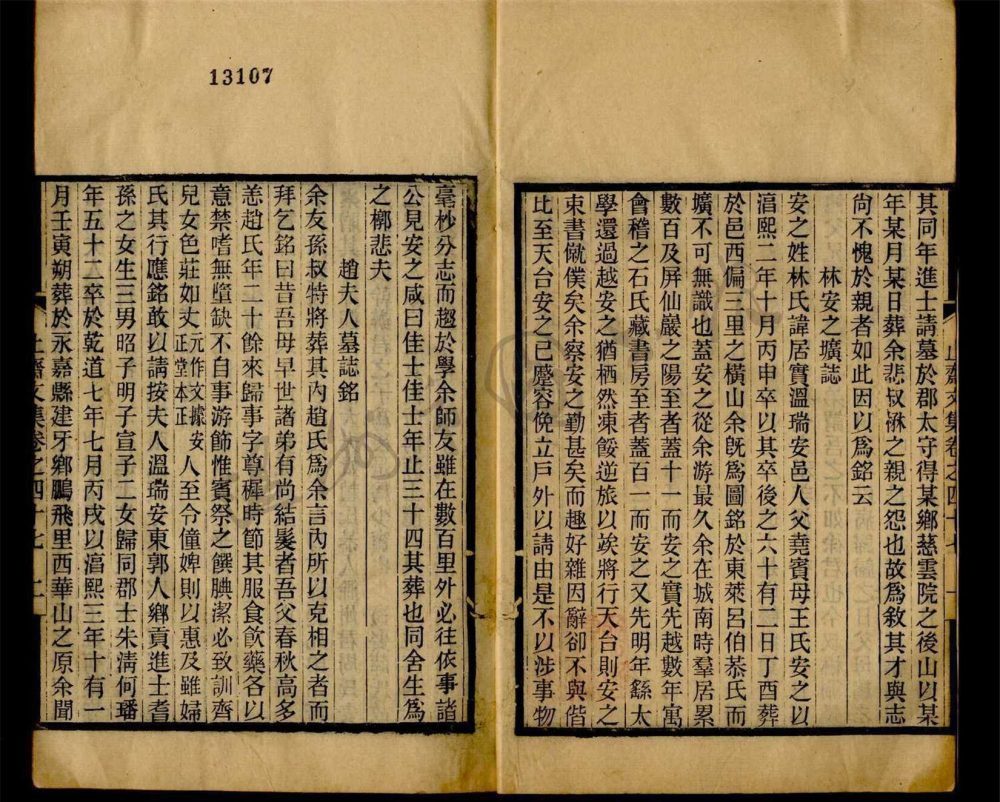 13107
其同年進士請墓於郡太守得某鄉慈雲院之後山以某
年某月某日葬余悲叔𥙷之親之怨也故爲敘其才與志
尚不愧於親者如此因以爲銘云
林安之壙誌
安之姓林氏諱居實溫瑞安邑人父堯賓母王氏安之以
湻熙二年十月丙申卒以其卒後之六十有二日丁酉葬
於邑西偏三里之橫山余旣爲圖銘於東萊呂伯恭氏而
壙不可無識也蓋安之從余游最久余在城南時羣居累
數百及屏仙巖之陽至者蓋十一而安之實先越數年寓
會稽之石氏藏書房至者蓋百一而安之又先明年繇太
學還過越安之猶栖然凍餒逆旅以竢將行天台則安之
束書僦僕矣余察安之勤甚矣而趣好雜因辭卻不與偕
比至天台安之已蹙容俛立戶外以請由是不以涉事物
止齋文集卷之四十七
一
毫杪分志而趨於學余師友雖在數百里外必往依事諸
公見安之咸曰佳士佳士年止三十四其葬也同舍生爲
之槨悲夫
趙夫人墓誌銘
余友孫叔特將葬其內趙氏爲余言內所以克相之者而
拜乞銘曰昔吾母早世諸弟有尚結髮者吾父春秋高多
恙趙氏年二十餘來歸事字尊穉時節其服食飮藥各以
意禁嗜無墮缺不自事游飾惟賓祭之饌腆潔必致訓齊
兒女色莊如丈元作文據安正堂本正人至令僮婢則以惠及雖婦
氏其行應銘敢以請按夫人溫瑞安東郭人鄉貢進士耆
孫之女生三男昭子明子宣子二女歸同郡士朱淸何璠
年五十二卒於乾道七年七月丙戌以湻熙三年十有一
月壬寅朔葬於永嘉縣建牙鄉鵬飛里西華山之原余聞
止齋文集卷之四十七
二